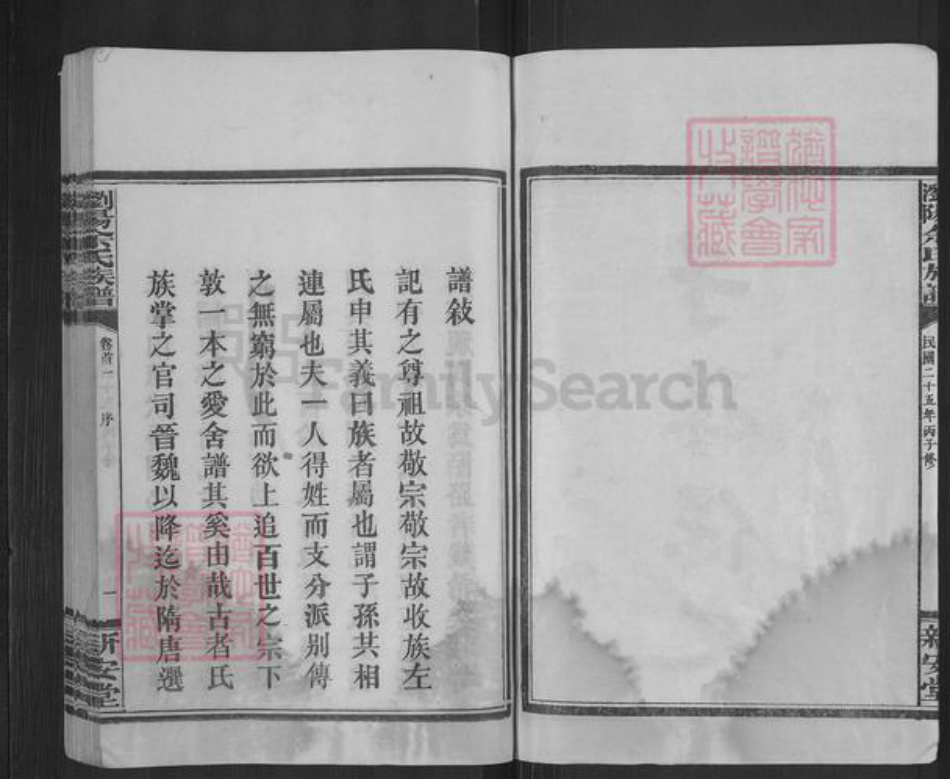 瀏陽余氏族譜
民國二十五年丙子修
新安堂
譜敍
記有之尊祖故敬宗敬宗故收族左
氏申其義曰族者屬也謂子孫共相
連屬也夫一人得姓而支分派别傳
之無窮於此而欲上追百世之宗下
敦一本之愛舍譜其奚由哉古者氏
族掌之官司晉魏以降迄於隋唐選
瀏陽余氏族譜
卷首一
序
一
新安堂
FamilySearch